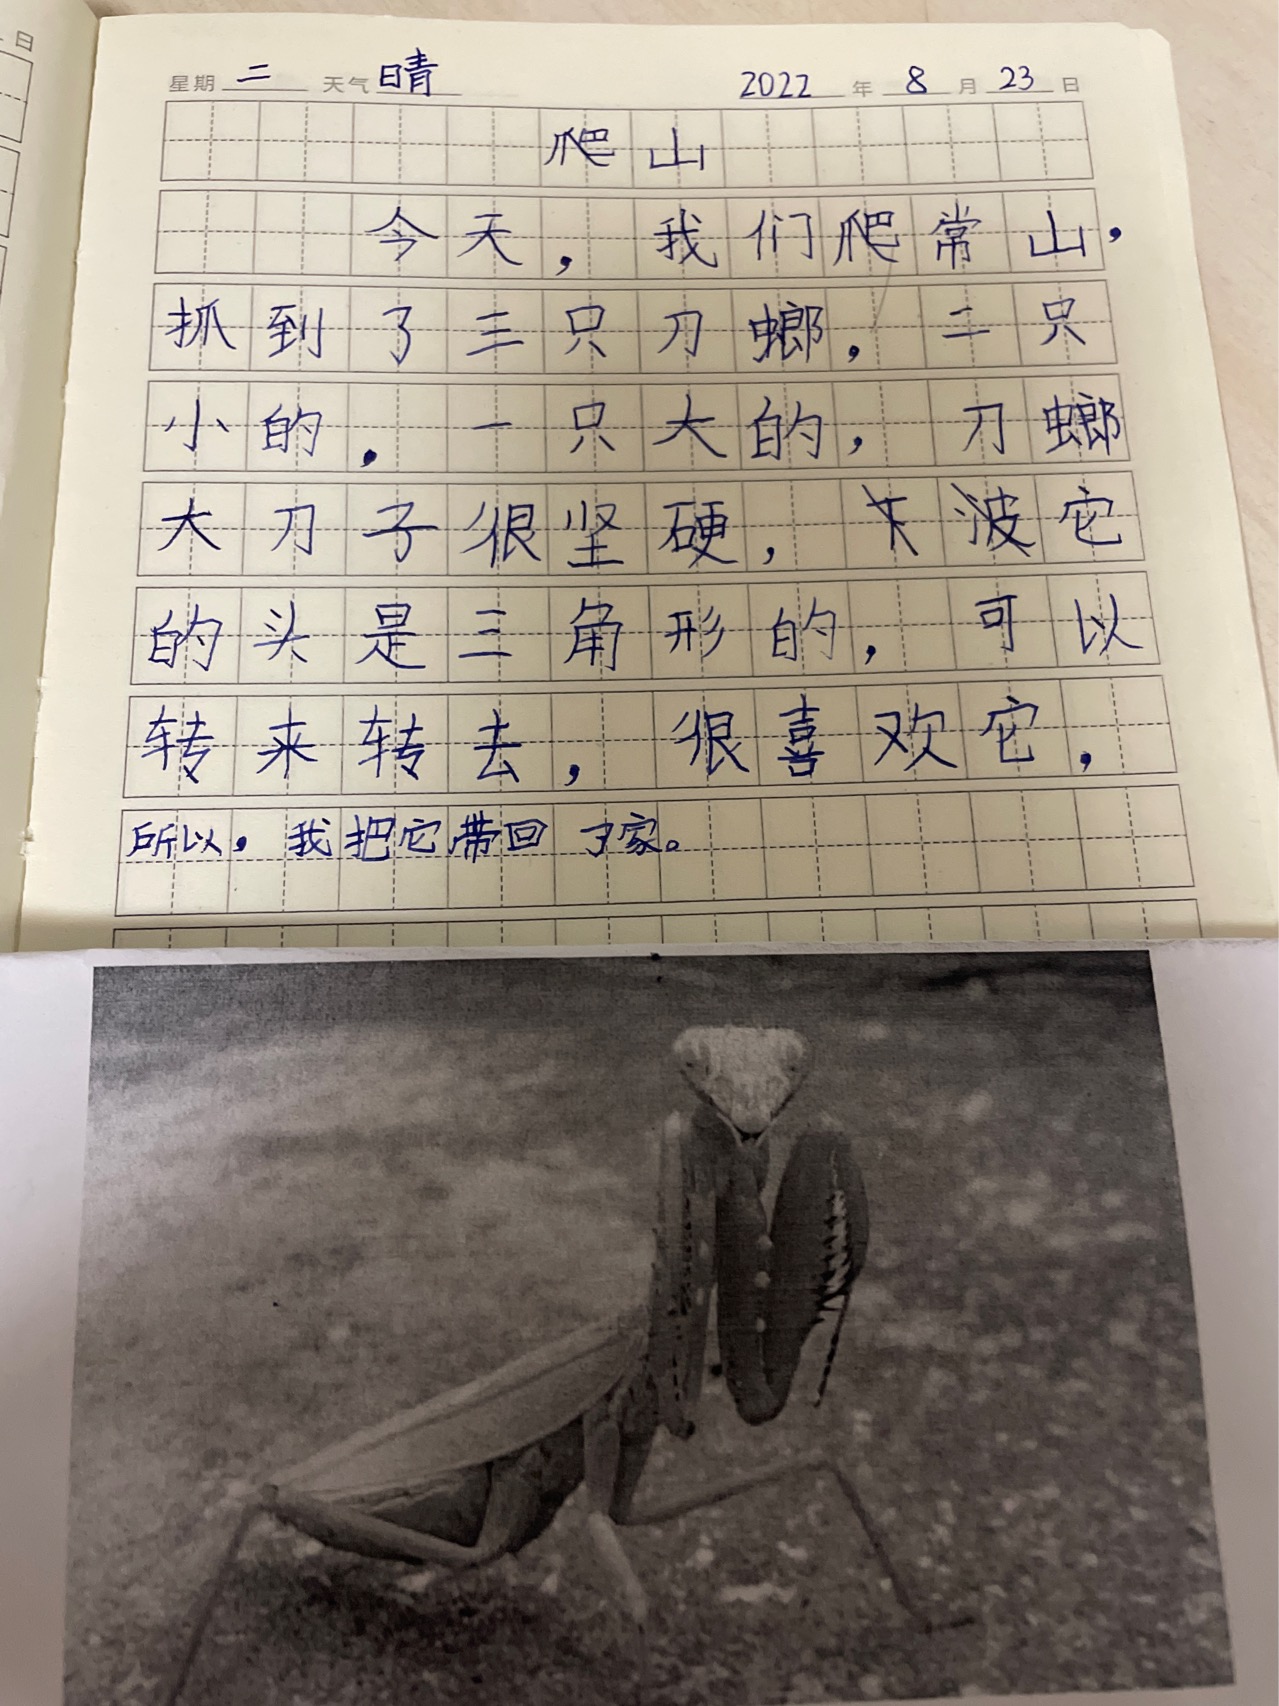 日
星期 二 天气 晴 2022 年 8 月 23 日
爬山
今天，我们爬常山，
抓到了三只刀螂，二只
小的，一只大的，刀螂
大刀子很坚硬，它
的头是三角形的，可以
转来转去，很喜欢它，
所以，我把它带回了家。